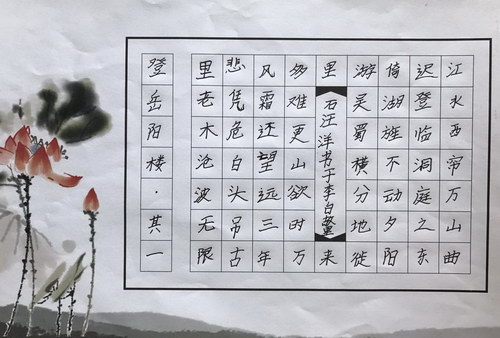 江水西帘万山曲
迟登临洞庭之东
倚湖旌不动夕阳
游吴蜀横分地徙
里
石汪洋书于李白
来
多难更山欲时万
风霜还望远三年
悲凭危白头吊古
里老木沧波无限
登岳阳楼·其一